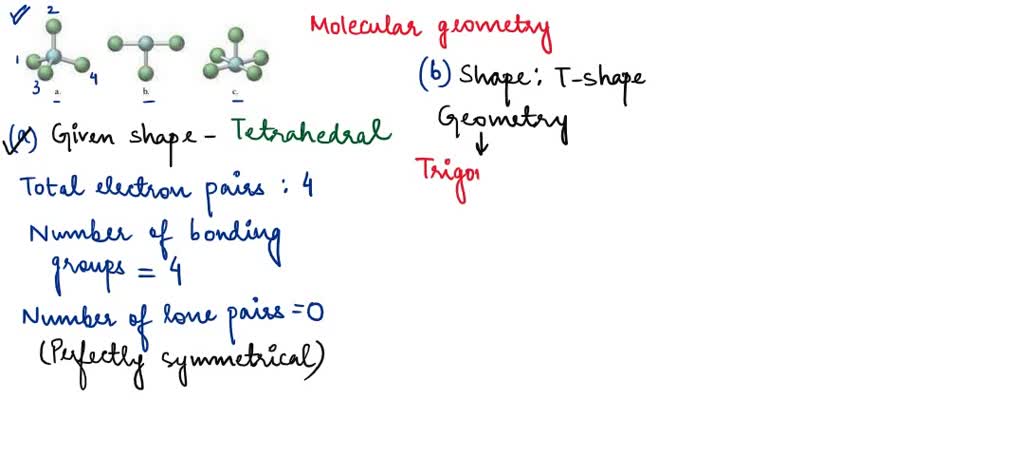 2
1
3
4
a.
b.
c.
(a) Given shape - Tetrahedral
Total electron pairs : 4
Number of bonding
groups = 4
Number of lone pairs = 0
(Perfectly symmetrical)
Molecular geometry
(b) Shape: T-shape
Geometry
Trigon